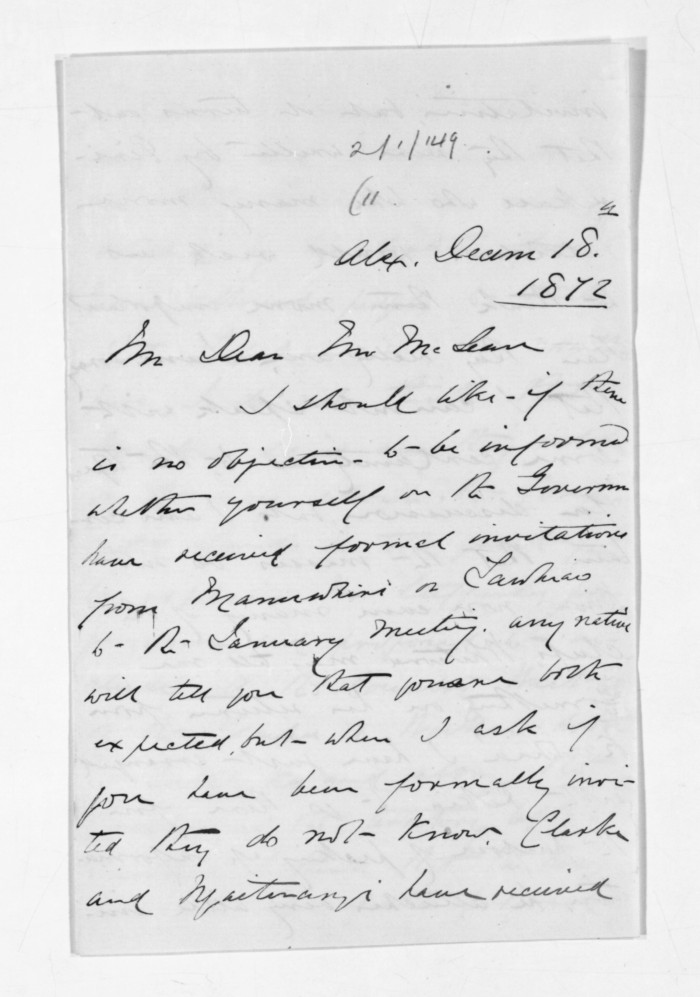 21/1/149
(11.
Alex. Decem 18.
1872
My Dear Mr McLean
I should like - if there
is no objection - to be informed
whether yourself or the Governor
have received formal invitations
from Manuwhiri or Tawhiao
to the January Meeting. any native
will tell you that you are both
expected, but when I ask if
you have been formally invi-
ted they do not know. Clarke
and have received